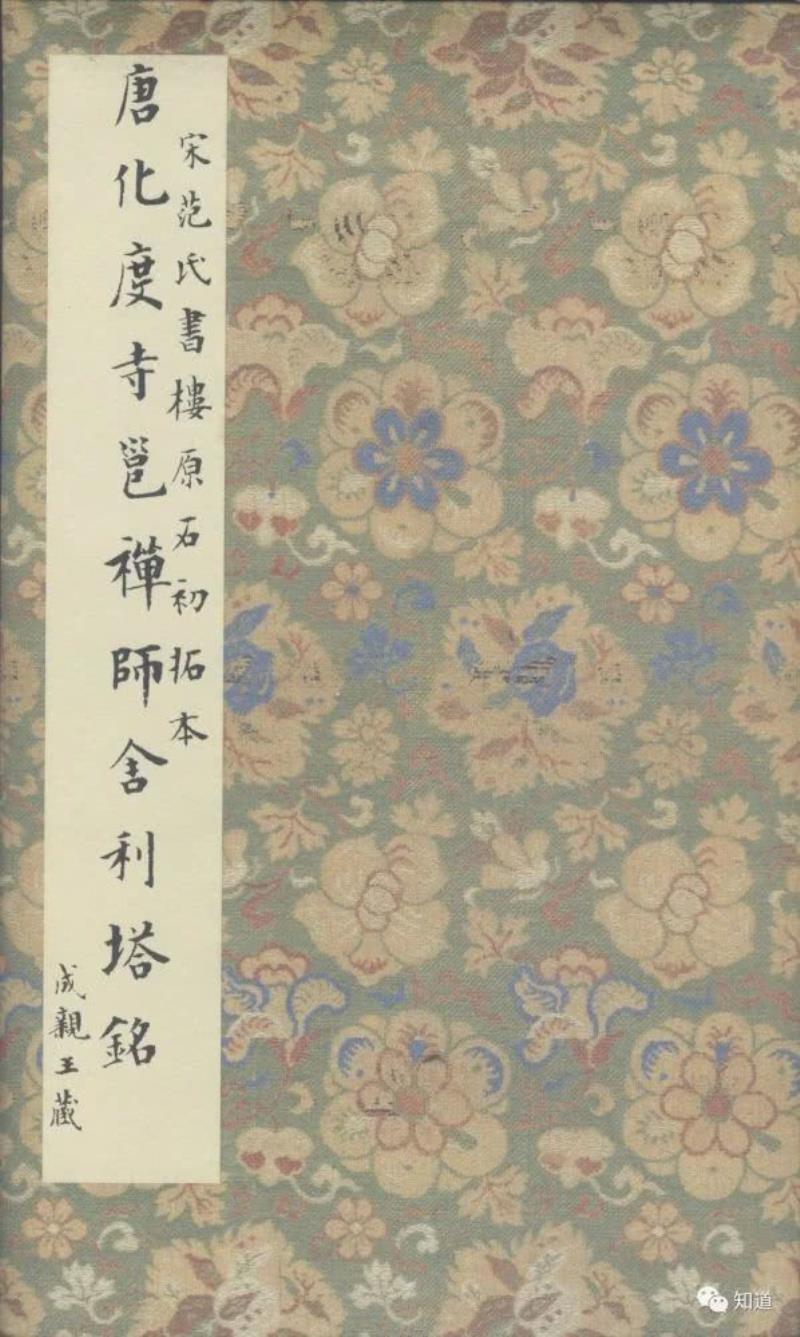 宋范氏書樓原石初拓本
唐化度寺邕禪師舍利塔銘
成親王藏
知道